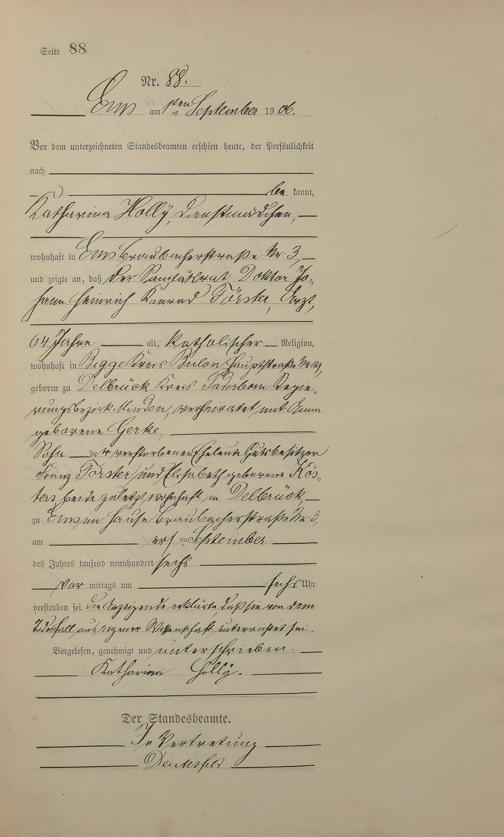 Seite 88
Nr. 88.
Ems am 1ten September 1906.
Vor dem unterzeichneten Standesbeamten erschien heute, der Persönlichkeit
nach
be kannt,
Katharina Holly, Dienstmädchen,
wohnhaft in Ems Braubacherstraße Nr 3,
und zeigte an, daß der Sanitätsrat Doktor Jo-
hann Heinrich Konrad Förster, Arzt,
64 Jahre alt, katholischer Religion,
wohnhaft in Bigge Kreis Brilon Hauptstraße
geboren zu Delbrück Kreis Paderborn Regie-
rungsbezirk Minden, verheiratet mit Anna
geborene Gerke,
Sohn der verstorbenen Eheleute Gutsbesitzer
Franz Förster und Elisabeth geborene Kös-
ters beide zuletzt wohnhaft in Delbrück,
zu Ems im Hause Braubacherstraße Nr 3,
am ersten September
des Jahres tausend neunhundert sechs
Vor mittags um sechs Uhr
verstorben sei. Die Anzeigende erklärte, daß sie von dem
Todesfall aus eigener Wissenschaft unterrichtet sei.
Vorgelesen, genehmigt und unterschrieben.
Katharina Holly.
Der Standesbeamte.
In Vertretung